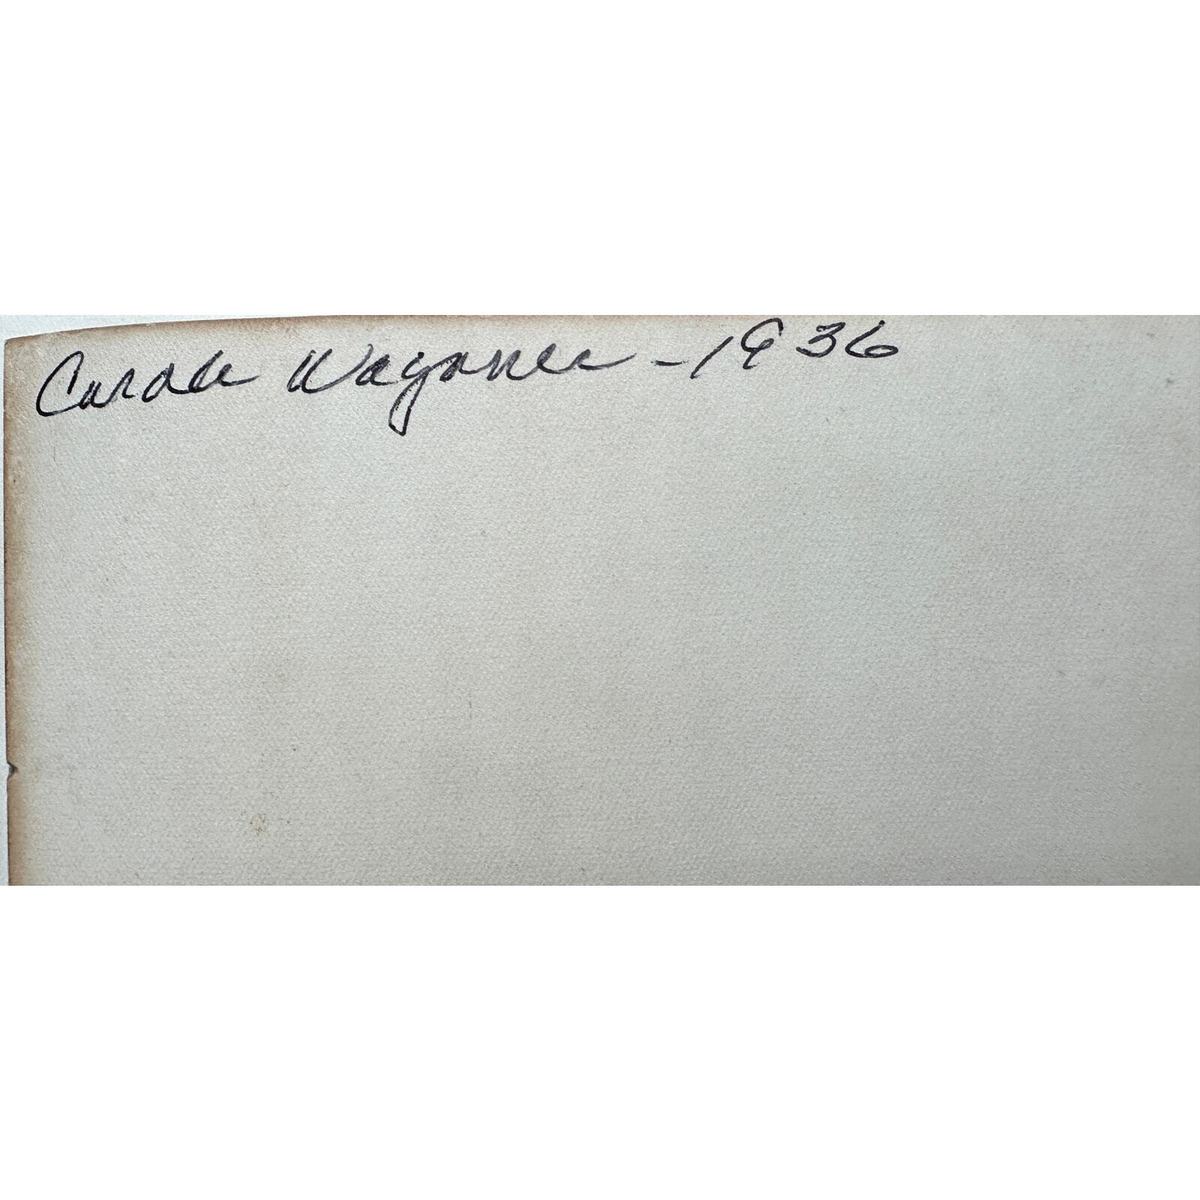 Carole Wagoner - 1936